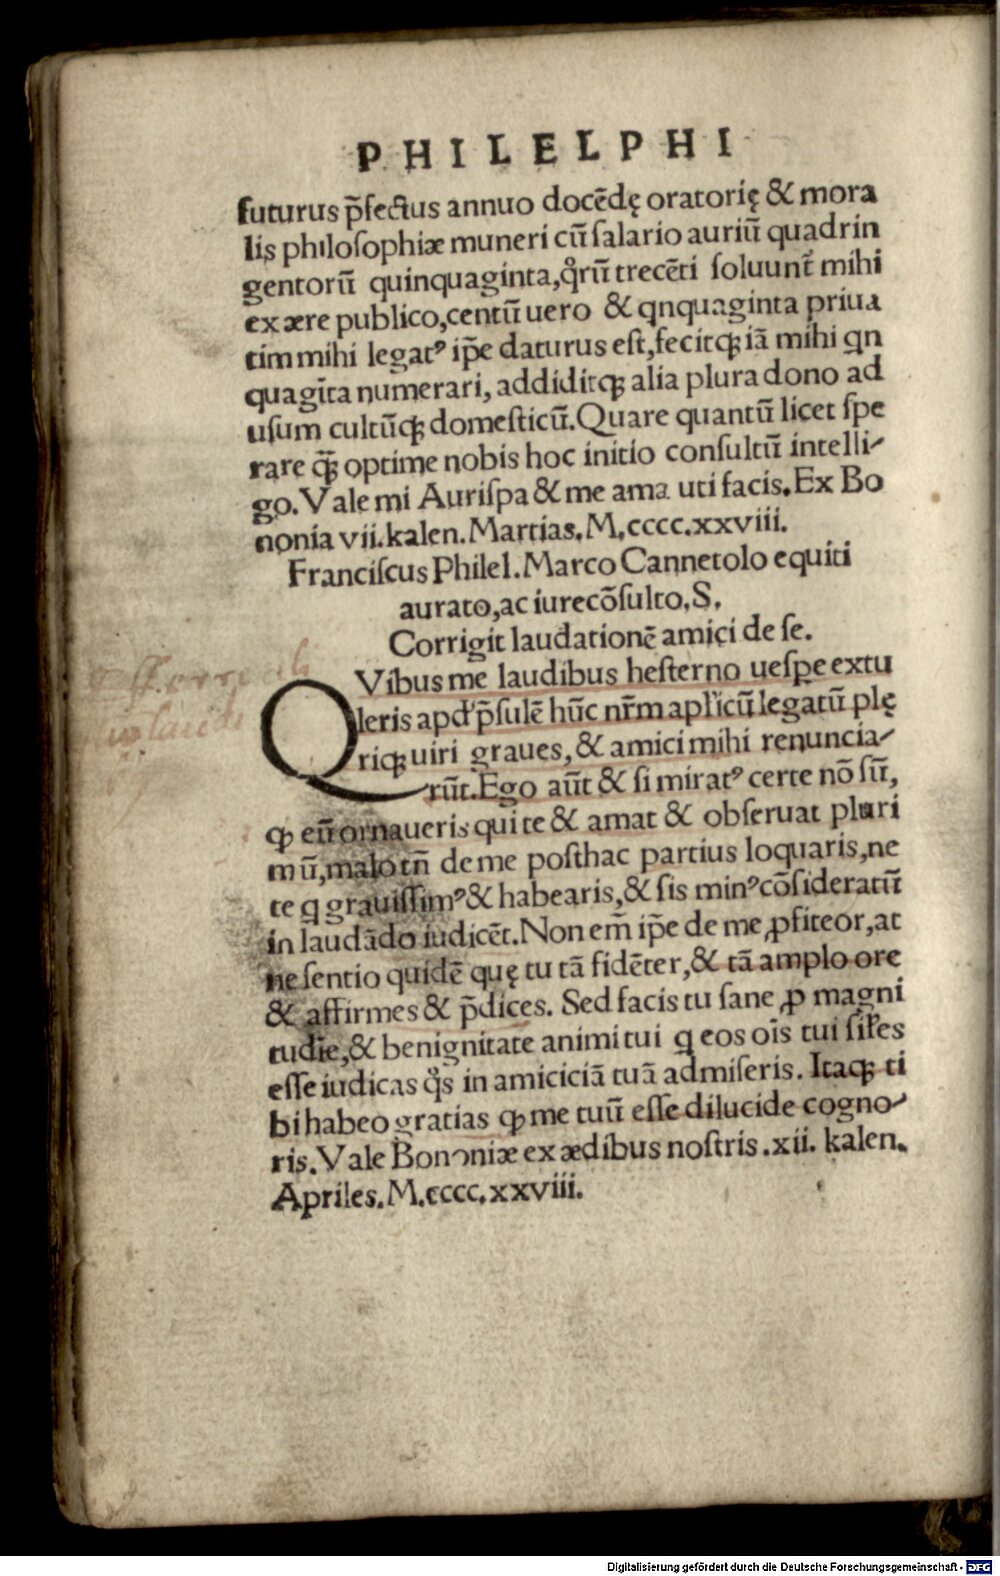 PHILELPHI
futurus p̄fectus annuo docēdę oratorię & mora
lis philosophiæ muneri cū salario auriū quadrin
gentorū quinquaginta, qr̊ū trecēti soluunt̄ mihi
ex ære publico, centū uero & qnquaginta priua
tim mihi legatꝰ ip̄e daturus est, fecitqꝫ iā mihi qn
quagīta numerari, addiditqꝫ alia plura dono ad
usum cultūqꝫ domesticū. Quare quantū licet spe
rare qꝫ̄ optime nobis hoc initio consultū intelli-
go. Vale mi Aurispa & me ama uti facis. Ex Bo
nonia vii. kalen. Martias. M.cccc.xxviii.
Franciscus Philel. Marco Cannetolo equiti
aurato, ac iurecōsulto, S.
Corrigit laudationē amici de se.
QVibus me laudibus hesterno uespe extu
leris apd' p̄sulē hūc nr̄m apl'icū legatū plę
riqꝫ uiri graues, & amici mihi renuncia-
rūt. Ego aūt & si miratꝰ certe nō sū,
ꝙ eū ornaueris qui te & amat & obseruat pluri
mū, malo tn̄ de me posthac partius loquaris, ne
te q grauissimꝰ & habearis, & sis minꝰ cōsideratū
in laudādo iudicēt. Non em̄ ip̄e de me ꝓfiteor, at
ne sentio quidē quę tu tā fidēter, & tā amplo ore
& affirmes & p̄dices. Sed facis tu sane ꝓ magni
tudīe, & benignitate animi tui q eos oīs tui sil'es
esse iudicas qs̊ in amiciciā tuā admiseris. Itaqꝫ ti
bi habeo gratias ꝙ me tuū esse dilucide cogno-
ris. Vale Bononiæ ex ædibus nostris .xii. kalen.
Apriles. M.cccc.xxviii.
Digitalisierung gefördert durch die Deutsche Forschungsgemeinschaft - DFG